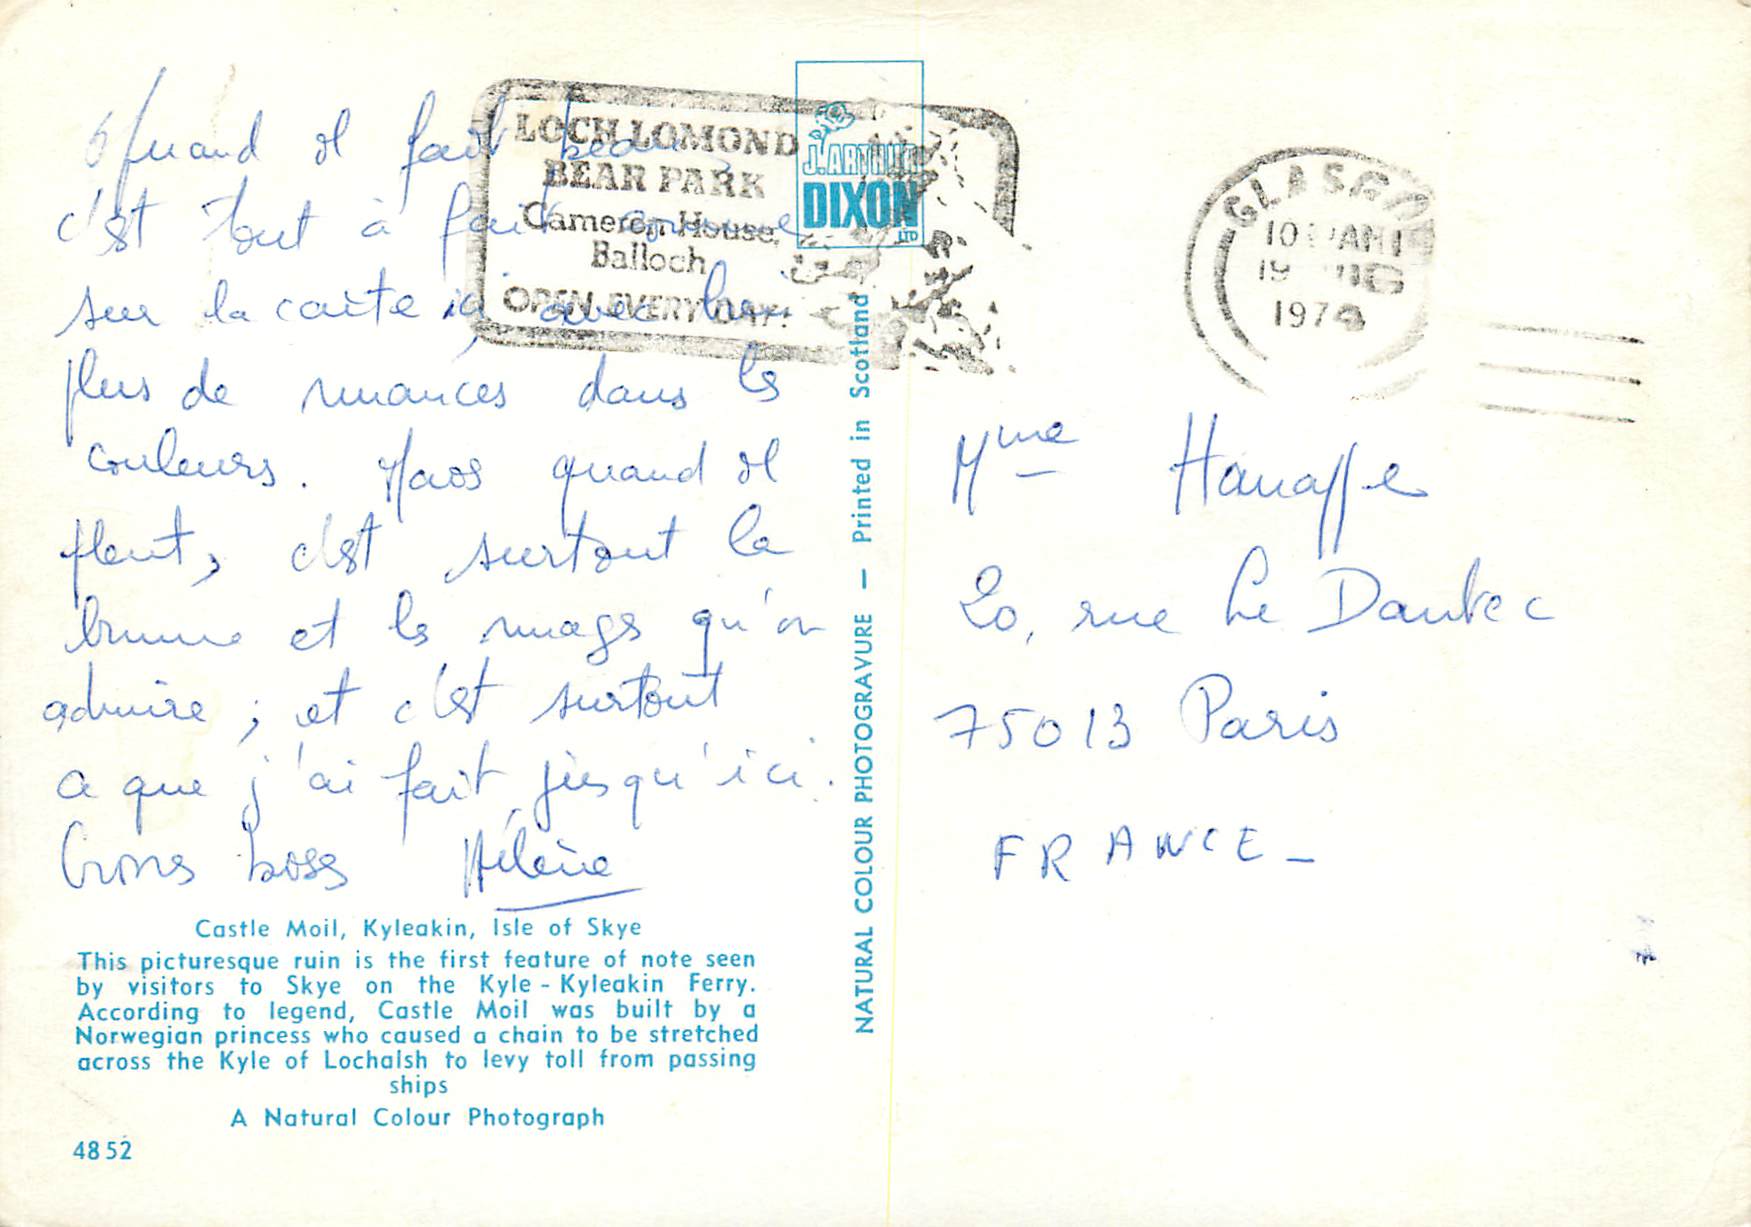 Quand il fait beau
c'est tout à fait comme
sur la carte ici avec
plus de nuances dans les
couleurs. Mais quand il
pleut, c'est surtout la
brume et les nuages qu'on
admire ; et c'est surtout
ce que j'ai fait jusqu'ici.
Gros bises Hélène
Castle Moil, Kyleakin, Isle of Skye
This picturesque ruin is the first feature of note seen
by visitors to Skye on the Kyle - Kyleakin Ferry.
According to legend, Castle Moil was built by a
Norwegian princess who caused a chain to be stretched
across the Kyle of Lochalsh to levy toll from passing
ships
A Natural Colour Photograph
4852
LOCH LOMOND
BEAR PARK
Cameron House,
Balloch
OPEN EVERY DAY.
J. ARTHUR
DIXON
LTD
NATURAL COLOUR PHOTOGRAVURE — Printed in Scotland
GLASGOW
10 AM
19
197
Mme
20, rue Le Dantec
75013 Paris
FRANCE_